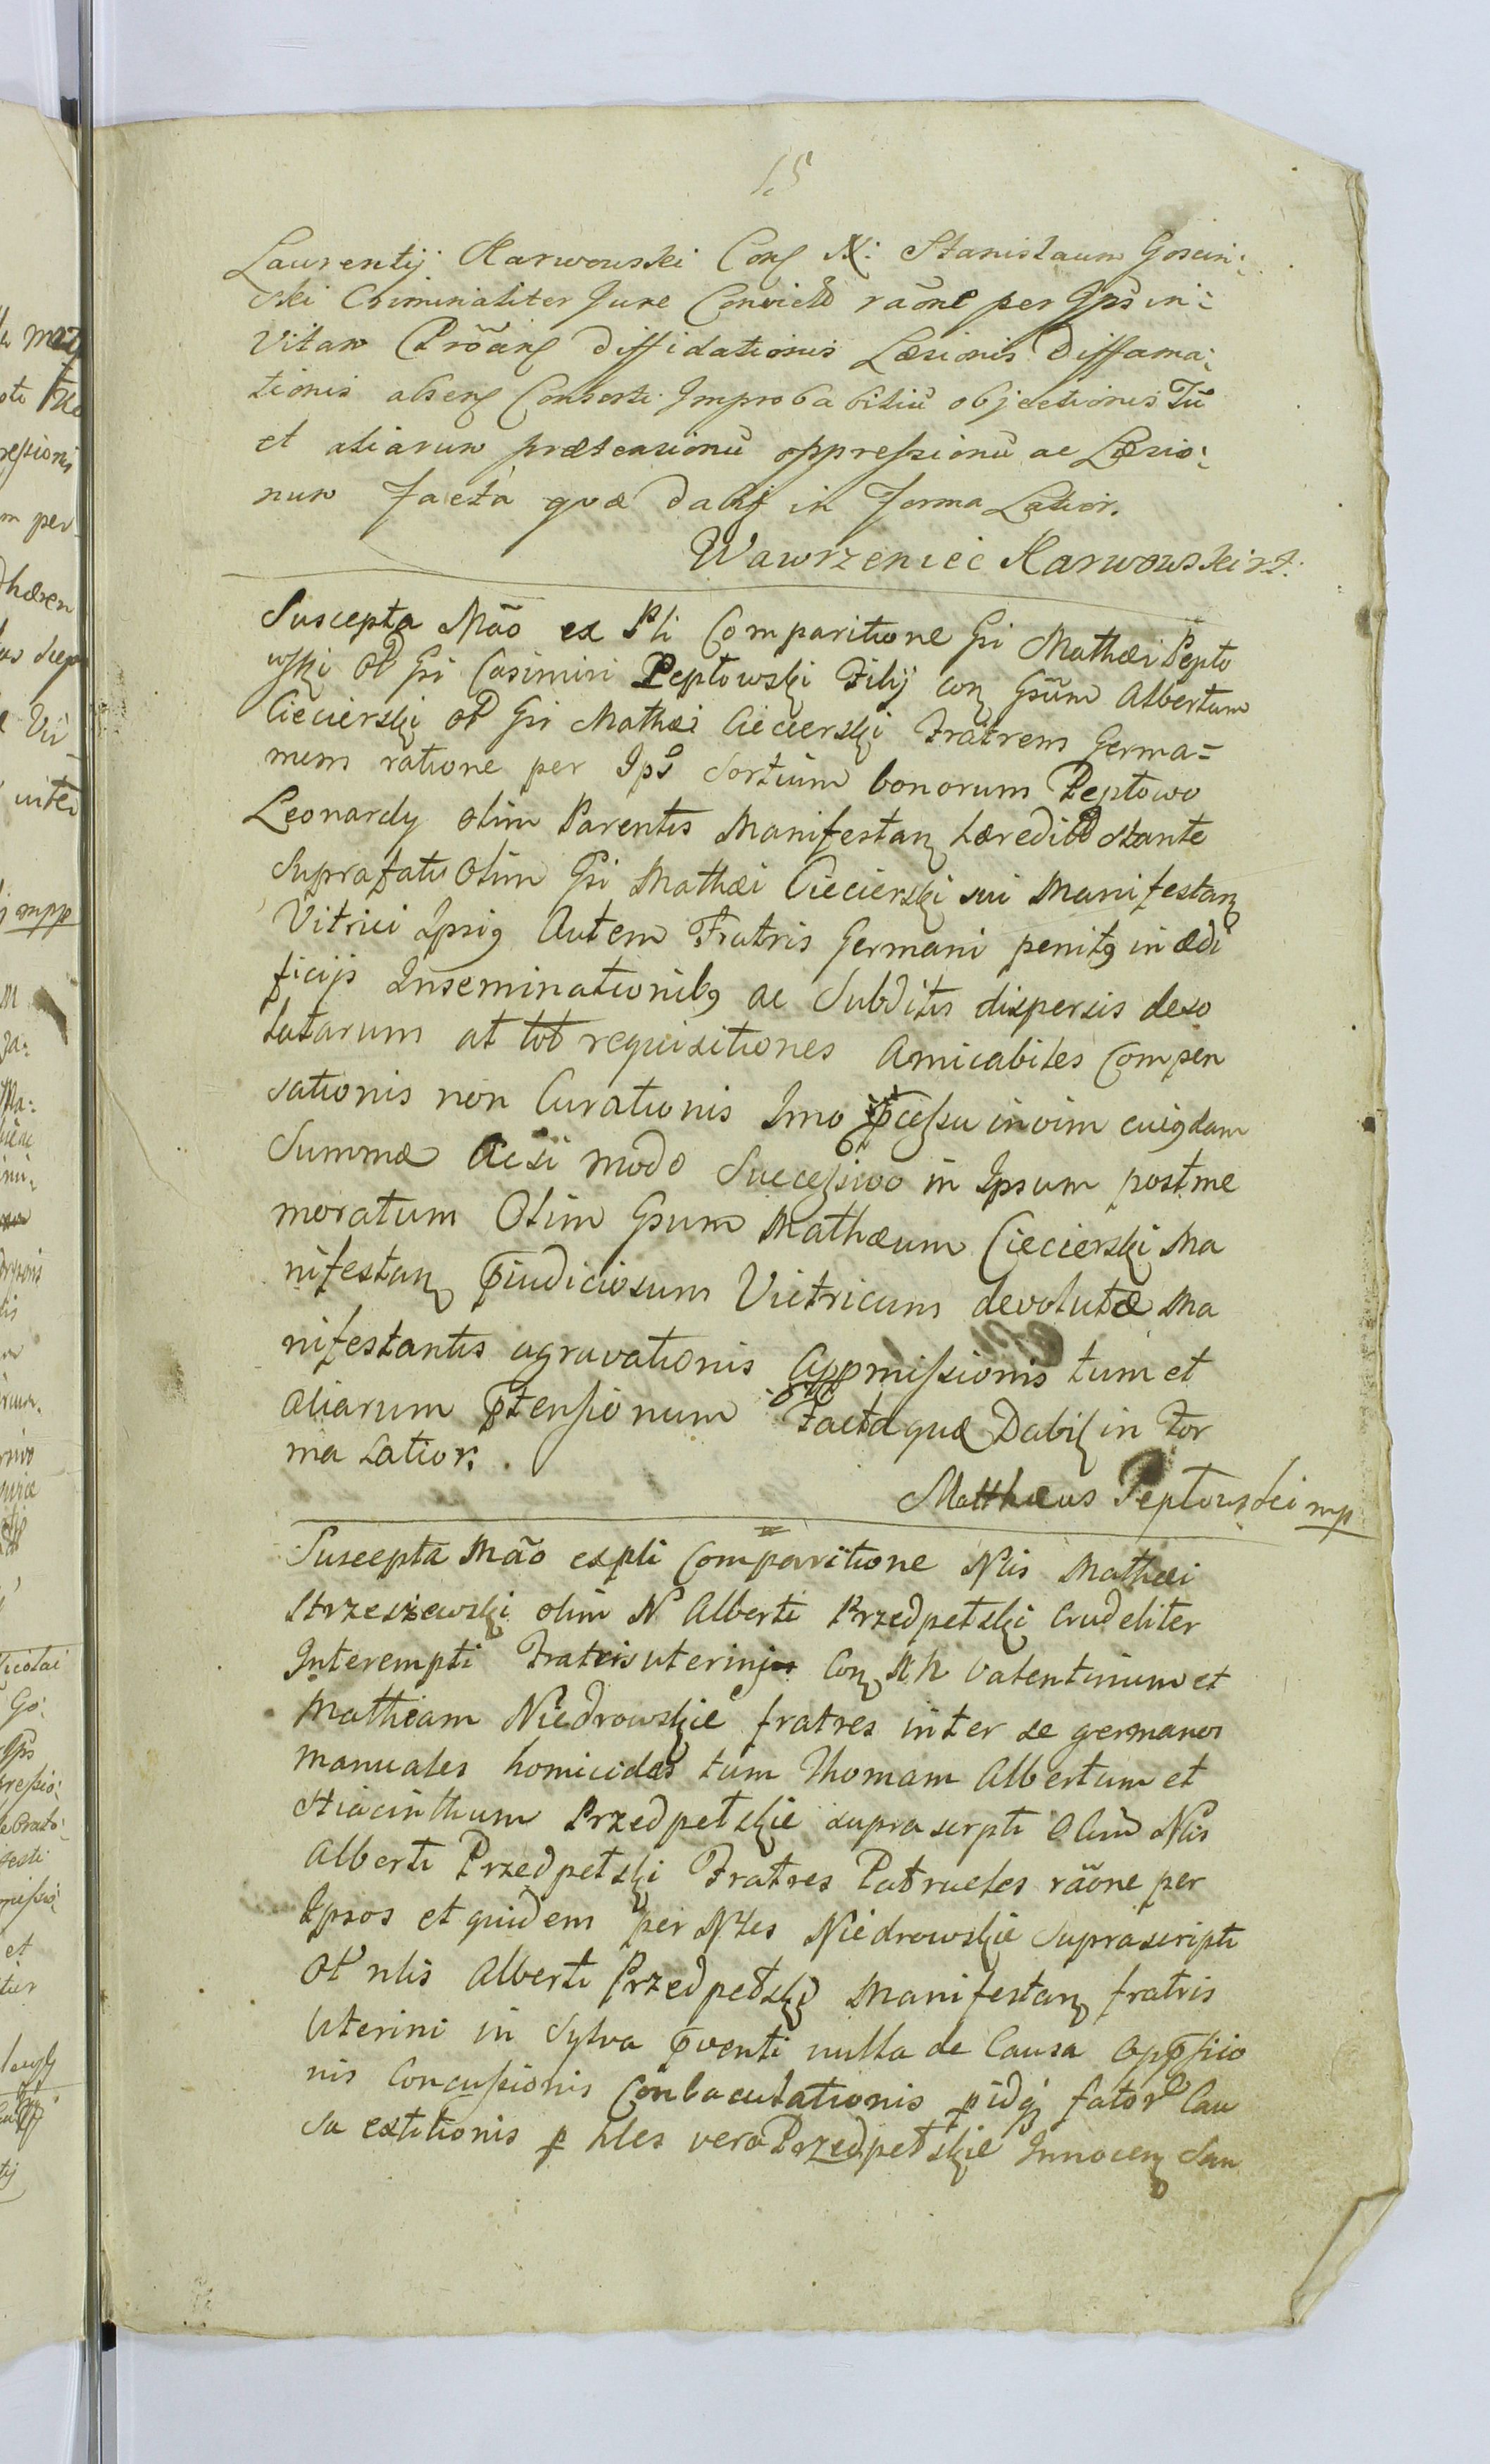 15
Laurentij Karwowski Conț N: Stanislaum Gosciń:
ski Criminaliter Jure Convictū raōne per Ipsū in:
Vitam Prōanț diffidationis Læsionis diffama:
tionis absenț Consorti Improbabiliū objectionis Tū
et aliarum prætensionū oppressionū ac Læsio:
num facta quæ dabiț in forma Latior.
Wawrzeniec Karwowski
Suscepta Mão ex Pli Comparitione Gsi Mathæi Pepło
wski Ol Gsi Casimiri Pepłowski Filij conț Gsūm Albertum
Ciecierski Ol Gsi Mathæi Ciecierski Fratrem Germa=
num ratione per Ips sortium bonorum Pepłowo
Leonardy olim Parentis Manifestanț hæredit stante
Suprafati Olim Gsi Mathæi Ciecierski sui Manifestanț
Vitrici Ipsig Autem Fratris Germani penitg in ædi
ficijs Inseminationibg ac Subditis dispersis deso
latarum at tot requisitiones Amicabiles Compen
sationis non Curationis Imo p̄cessu in vim cuigdam
Summæ Acsi modo Successivo in Ipsum postme
moratum Olim Gsum Mathæum Ciecierski Ma
nifestanț p̄iudiciosum Victricum devolutæ Ma
nifestantis agravationis Appmissionis tum et
aliarum p̄tensionum Facta quæ Dabiț in For
ma Latior.
Matthæus Pepłowski mp
Suscepta Mão expli Comparitione Nlis Mathæi
Strzeszewski olim N Alberti Przedpełski Crudeliter
Interempti Fratris uterini Conț N N Valentinum et
Mathiam Niedrowskie fratres inter se germanos
manuales homicidas tum Thomam Albertum et
Hiacinthum Przedpełskie suprascrpti Olim Nlis
Alberti Przedpełski Fratres Patrueles rāone per
Ipsos et quidem per Nles Niedrowskie Suprascripti
Ol nlis Alberti Przedpełski Manifestanț fratris
Uterini in Sylva p̄venti nulla de Causa opp̄ssio
nis Concussionis Conbaculationis p idq fator Cau
sa extitionis p Nles vero Przedpełskie Innocenț San